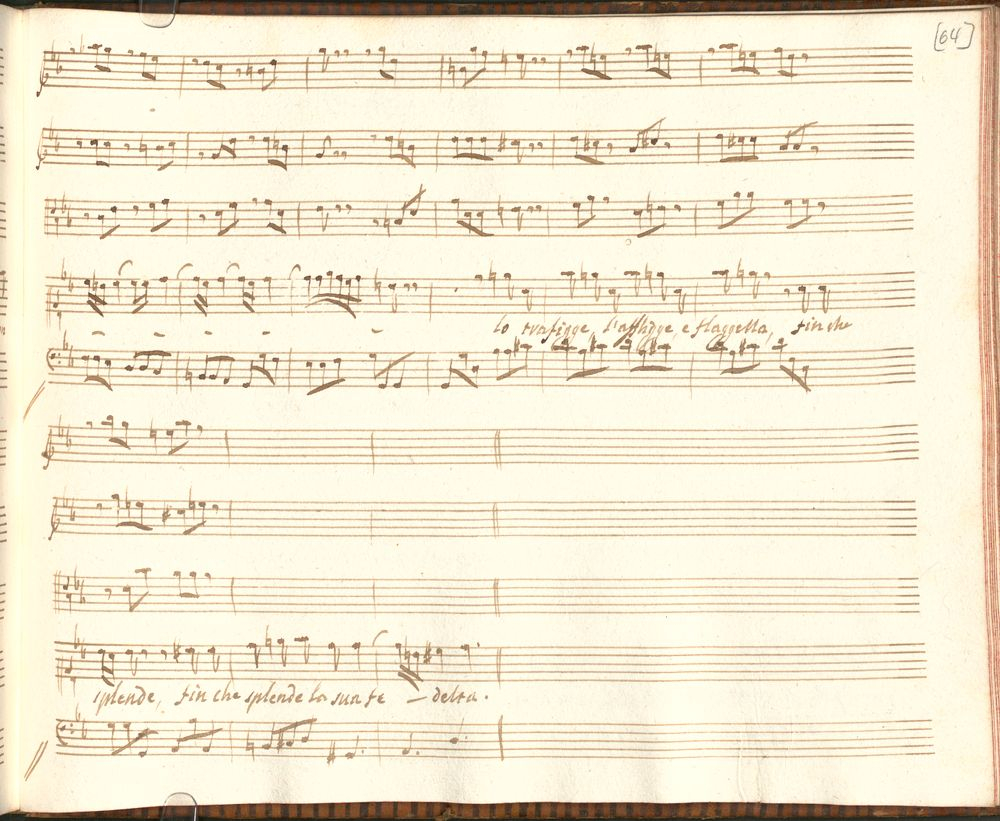 [64]
lo trafigge, l'afflige, e flaggella, finche
splende, fin che splende la sua fe — deltà.